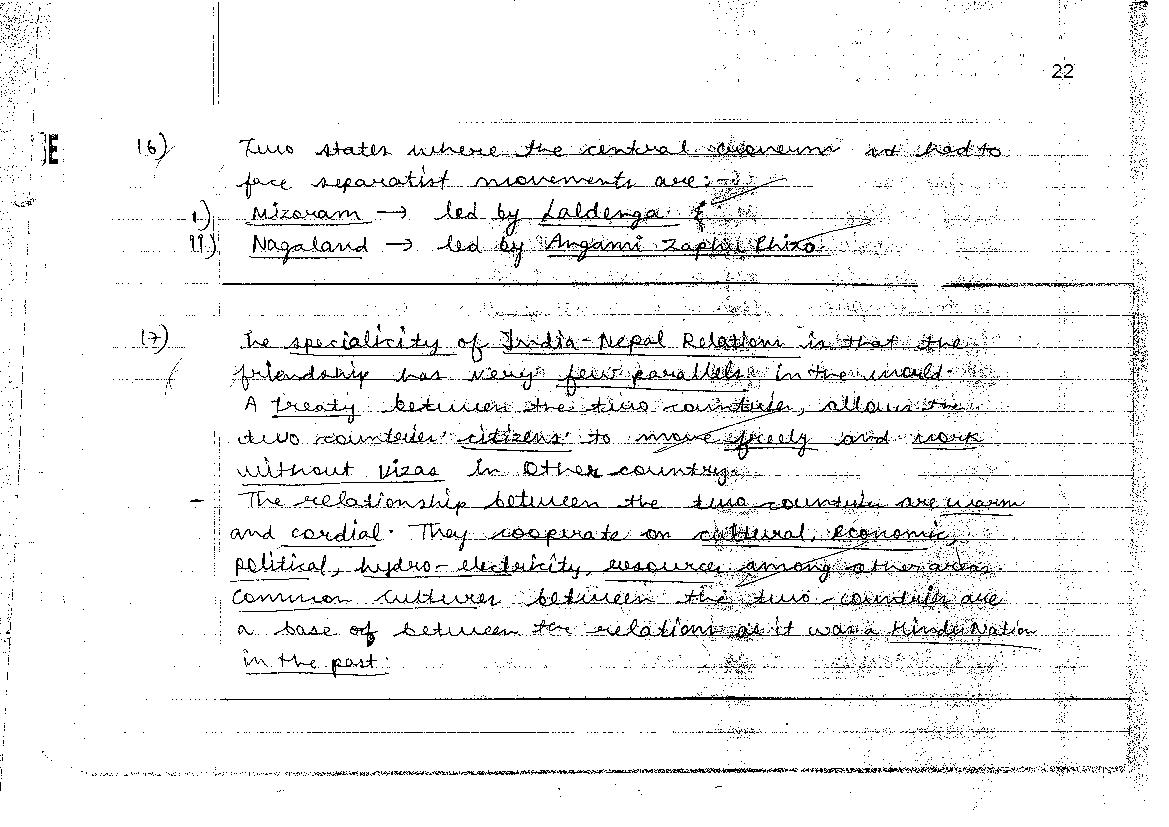 22
E
16) Two states where the central had to
face separatist movements are:-
i.) Mizoram → led by Laldenga &
ii.) Nagaland → led by Angami Zaphu Phizo.
17) The speciality of India-Nepal Relations is that the
friendship has very few parallels in the world.
A treaty between the two countries, allows the
two countries' citizens to move freely and work
without vizas in other country.
- The relationship between the two countries are warm
and cordial. They cooperate on cultural, economic,
political, hydro-electricity, resources among other areas.
Common cultures between the two-countries are
a base of between the relations as it was a Hindu Nation
in the past.